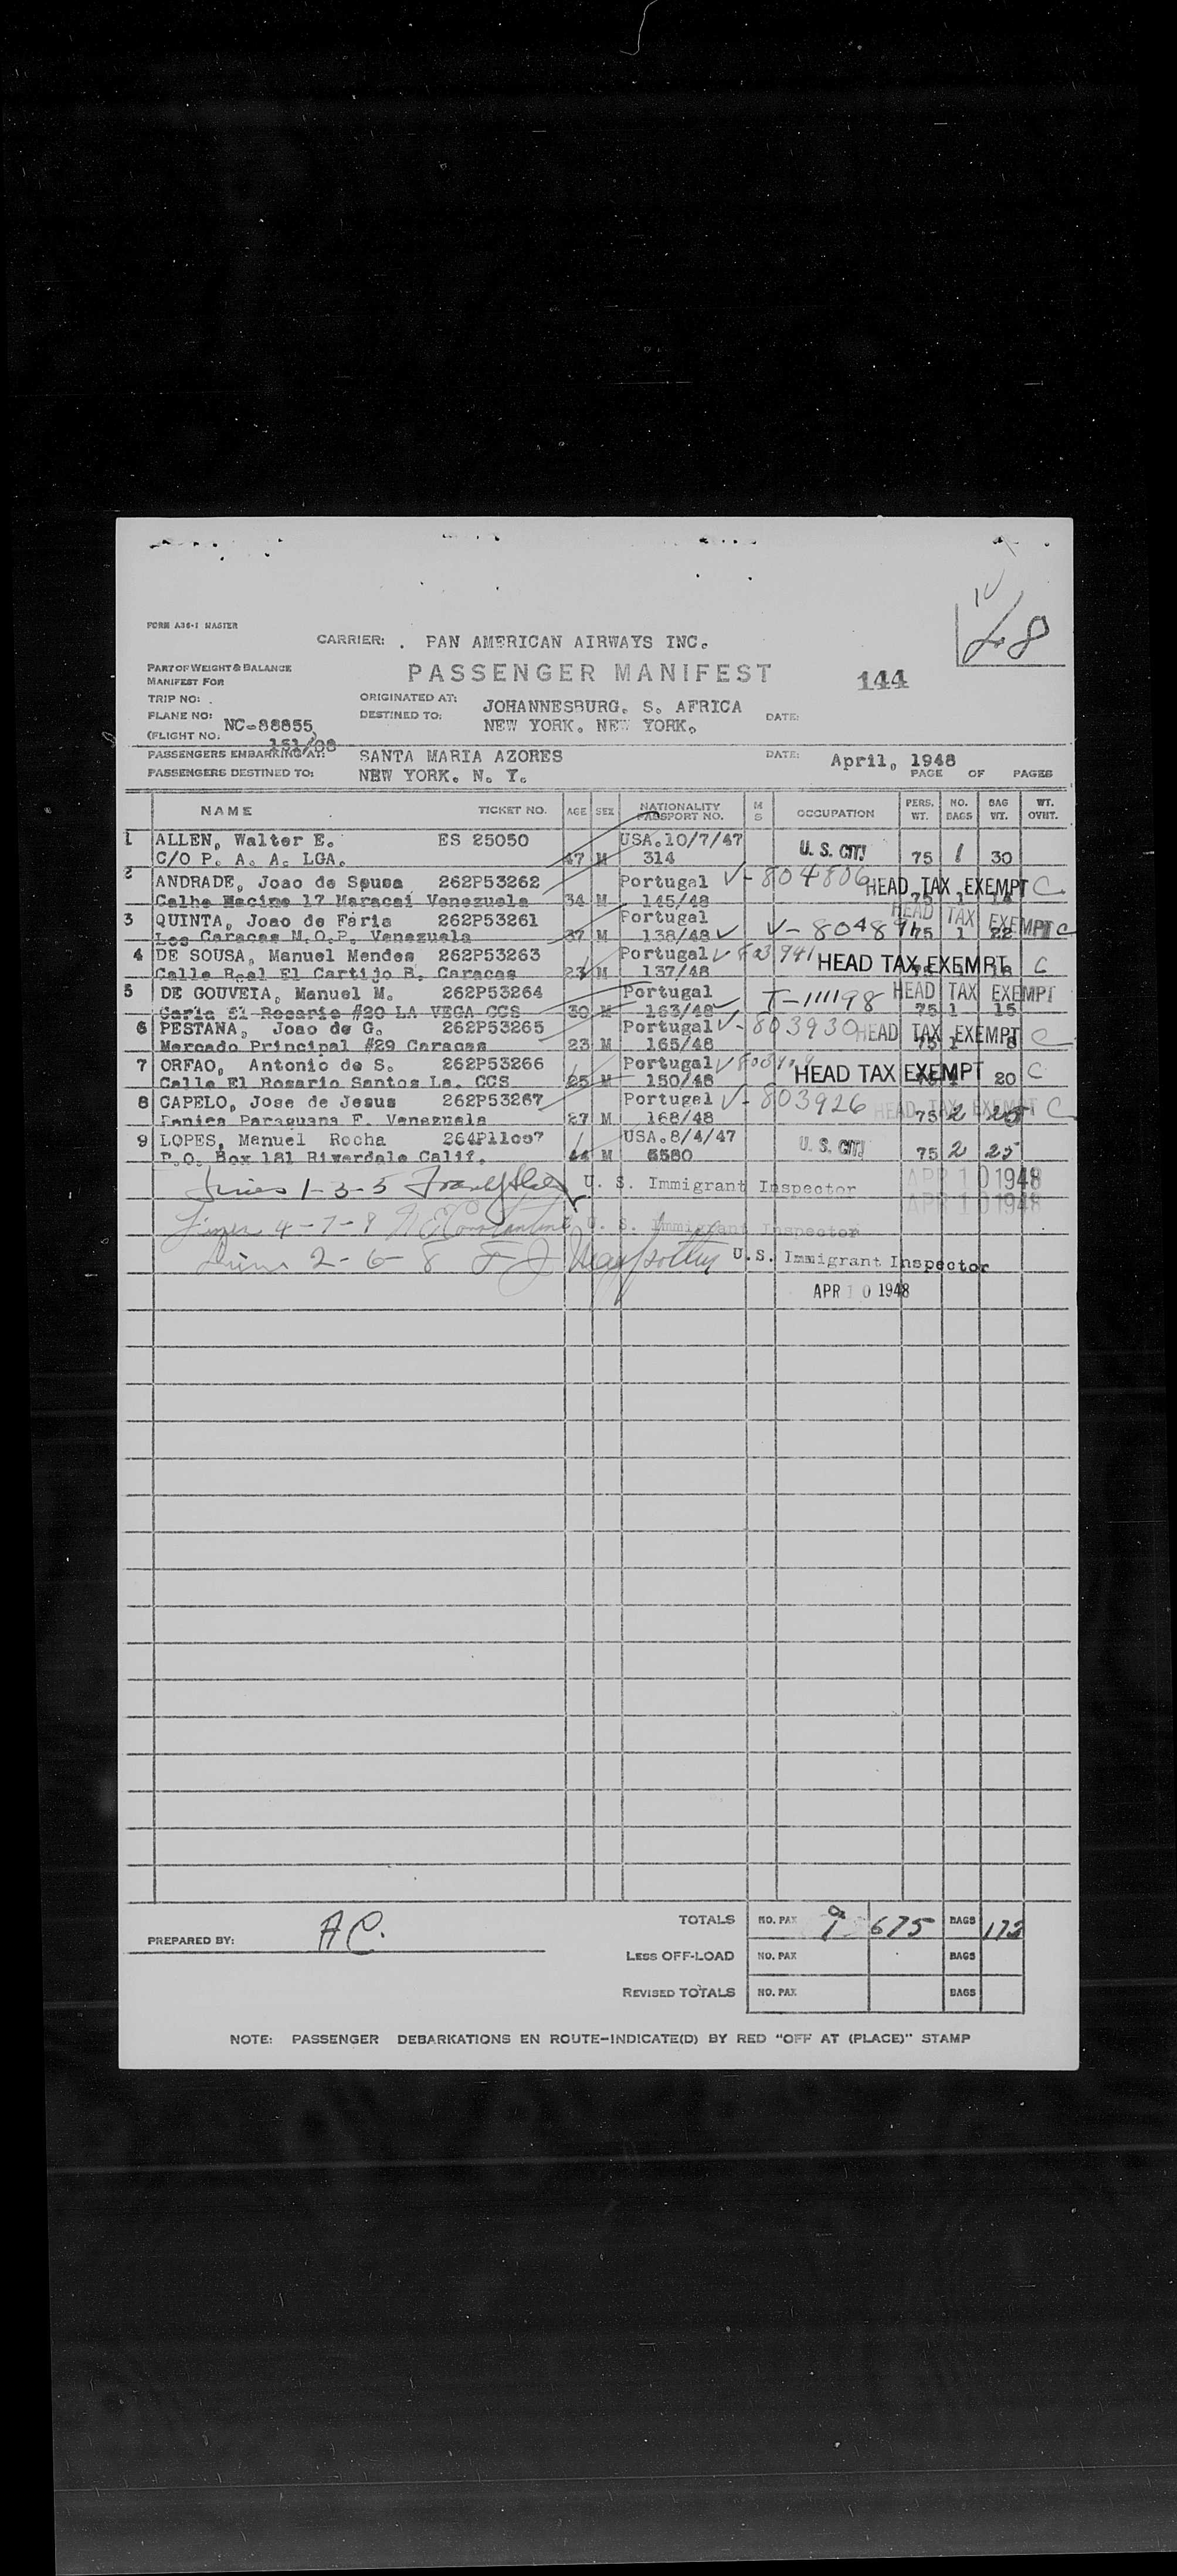 10
48
FORM A36-1 MASTER
CARRIER: . PAN AMERICAN AIRWAYS INC.
PART OF WEIGHT & BALANCE
MANIFEST FOR
PASSENGER MANIFEST
144
TRIP NO: .
ORIGINATED AT: JOHANNESBURG. S. AFRICA
PLANE NO: NC-88855
DESTINED TO: NEW YORK. NEW YORK.
DATE:
(FLIGHT NO. 151/08
PASSENGERS EMBARKING AT: SANTA MARIA AZORES
DATE: April, 1948
PASSENGERS DESTINED TO: NEW YORK. N. Y.
PAGE OF PAGES
NAME TICKET NO. AGE SEX NATIONALITY PASSPORT NO. M S OCCUPATION PERS. WT. NO. BAGS BAG WT. WT. OVHT.
1 ALLEN, Walter E. ES 25050 USA.10/7/47 U. S. CIT
C/O P. A. A. LGA. 47 M 314 75 1 30
2 ANDRADE, Joao de Sousa 262P53262 Portugal V-804806 HEAD TAX EXEMPT C
Calhe Macime 17 Maracai Venezuela 34 M 145/48 75 1
3 QUINTA, Joao de Faria 262P53261 Portugal HEAD TAX EXEMPT C
Los Caracas M.O.P. Venezuela 37 M 138/48 V-8048 75 1 22
4 DE SOUSA, Manuel Mendes 262P53263 Portugal HEAD TAX EXEMPT C
Calle Real El Cartijo B. Caracas 23 M 137/48
5 DE GOUVEIA, Manuel M. 262P53264 Portugal T-111198 HEAD TAX EXEMPT
El Rosario #20 LA VEGA CCS 30 M 163/48 75 1 15
6 PESTANA, Joao de G. 262P53265 Portugal V-803930 HEAD TAX EXEMPT C
Mercado Principal #29 Caracas 23 M 165/48 75 1 8
7 ORFAO, Antonio de S. 262P53266 Portugal HEAD TAX EXEMPT C
Calle El Rosario Santos La. CCS 25 M 150/48 20
8 CAPELO, Jose de Jesus 262P53267 Portugal V-803926 HEAD TAX EXEMPT C
Panica Paraguana F. Venezuela 27 M 168/48 75 2 25
9 LOPES, Manuel Rocha USA.8/4/47 U. S. CIT
P.O. Box 181 Riverdale Calif. 44 M 5580 75 2 25
Lines 1-3-5 U. S. Immigrant Inspector APR 10 1948
APR 10 1948
Lines 4-7-9 Constantine U. S. Immigrant Inspector
Lines 2-6-8 U.S. Immigrant Inspector
APR 10 1948
PREPARED BY: AC.
TOTALS NO. PAX 9 675 BAGS 173
LESS OFF-LOAD NO. PAX BAGS
REVISED TOTALS NO. PAX BAGS
NOTE: PASSENGER DEBARKATIONS EN ROUTE-INDICATE(D) BY RED "OFF AT (PLACE)" STAMP